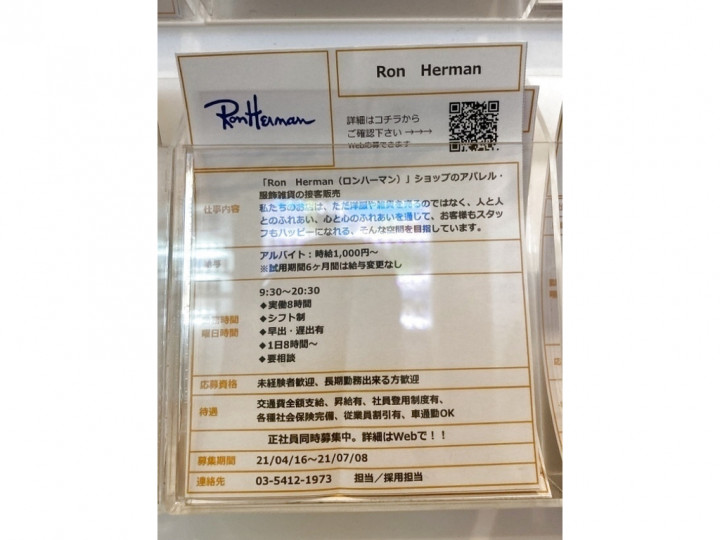 Ron Herman
Ron Herman
詳細はコチラから
ご確認下さい →→→
Web応募できます
「Ron Herman（ロンハーマン）」ショップのアパレル・
服飾雑貨の接客販売
仕事内容
私たちのお店は、ただ洋服や雑貨を売るのではなく、人と人
とのふれあい、心と心のふれあいを通じて、お客様もスタッ
フもハッピーになれる、そんな空間を目指しています。
アルバイト：時給1,000円～
※試用期間6ヶ月間は給与変更なし
9:30～20:30
◆実働8時間
時間
◆シフト制
曜日時間
◆早出・遅出有
◆1日8時間～
◆要相談
応募資格 未経験者歓迎、長期勤務出来る方歓迎
待遇
交通費全額支給、昇給有、社員登用制度有、
各種社会保険完備、従業員割引有、車通勤OK
正社員同時募集中。詳細はWebで！！
募集期間 21/04/16～21/07/08
連絡先 03-5412-1973 担当／採用担当